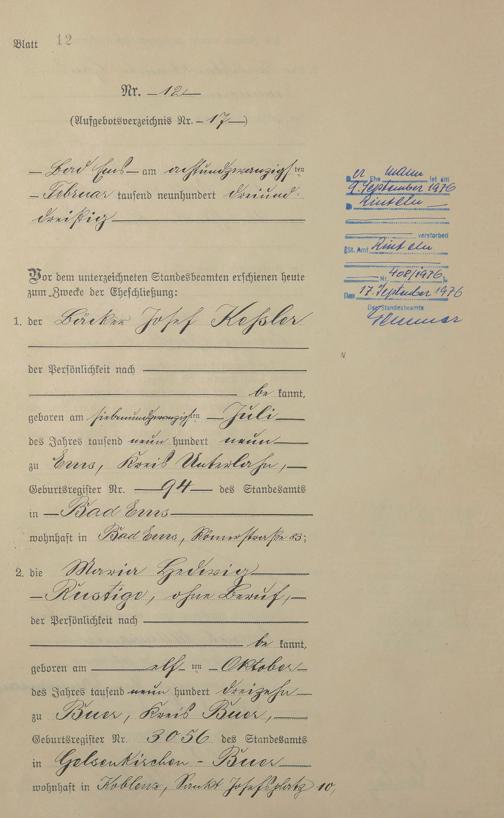 Blatt 12
Nr. 12
(Aufgebotsverzeichnis Nr. 17)
Bad Ems am achtundzwanzigsten
Februar tausend neunhundert dreiund-
dreißig
Vor dem unterzeichneten Standesbeamten erschienen heute
zum Zwecke der Eheschließung:
1. der Bäcker Josef Keßler
der Persönlichkeit nach
be kannt,
geboren am siebenundzwanzigsten Juli
des Jahres tausend neun hundert neun
zu Ems, Kreis Unterlahn,
Geburtsregister Nr. 94 des Standesamts
in Bad Ems
wohnhaft in Bad Ems, Römerstraße 85;
2. die Maria Hedwig
Rustige, ohne Beruf,
der Persönlichkeit nach
be kannt,
geboren am elften Oktober
des Jahres tausend neun hundert dreizehn
zu Buer, Kreis Buer,
Geburtsregister Nr. 3056 des Standesamts
in Gelsenkirchen - Buer
wohnhaft in Koblenz, Sankt Josefsplatz 10,
Der Ehe mann ist am
9. September 1976
Rinteln
verstorben
St. Amt Rinteln
Nr. 408/1976
Den 17. September 1976
Der Standesbeamte
N